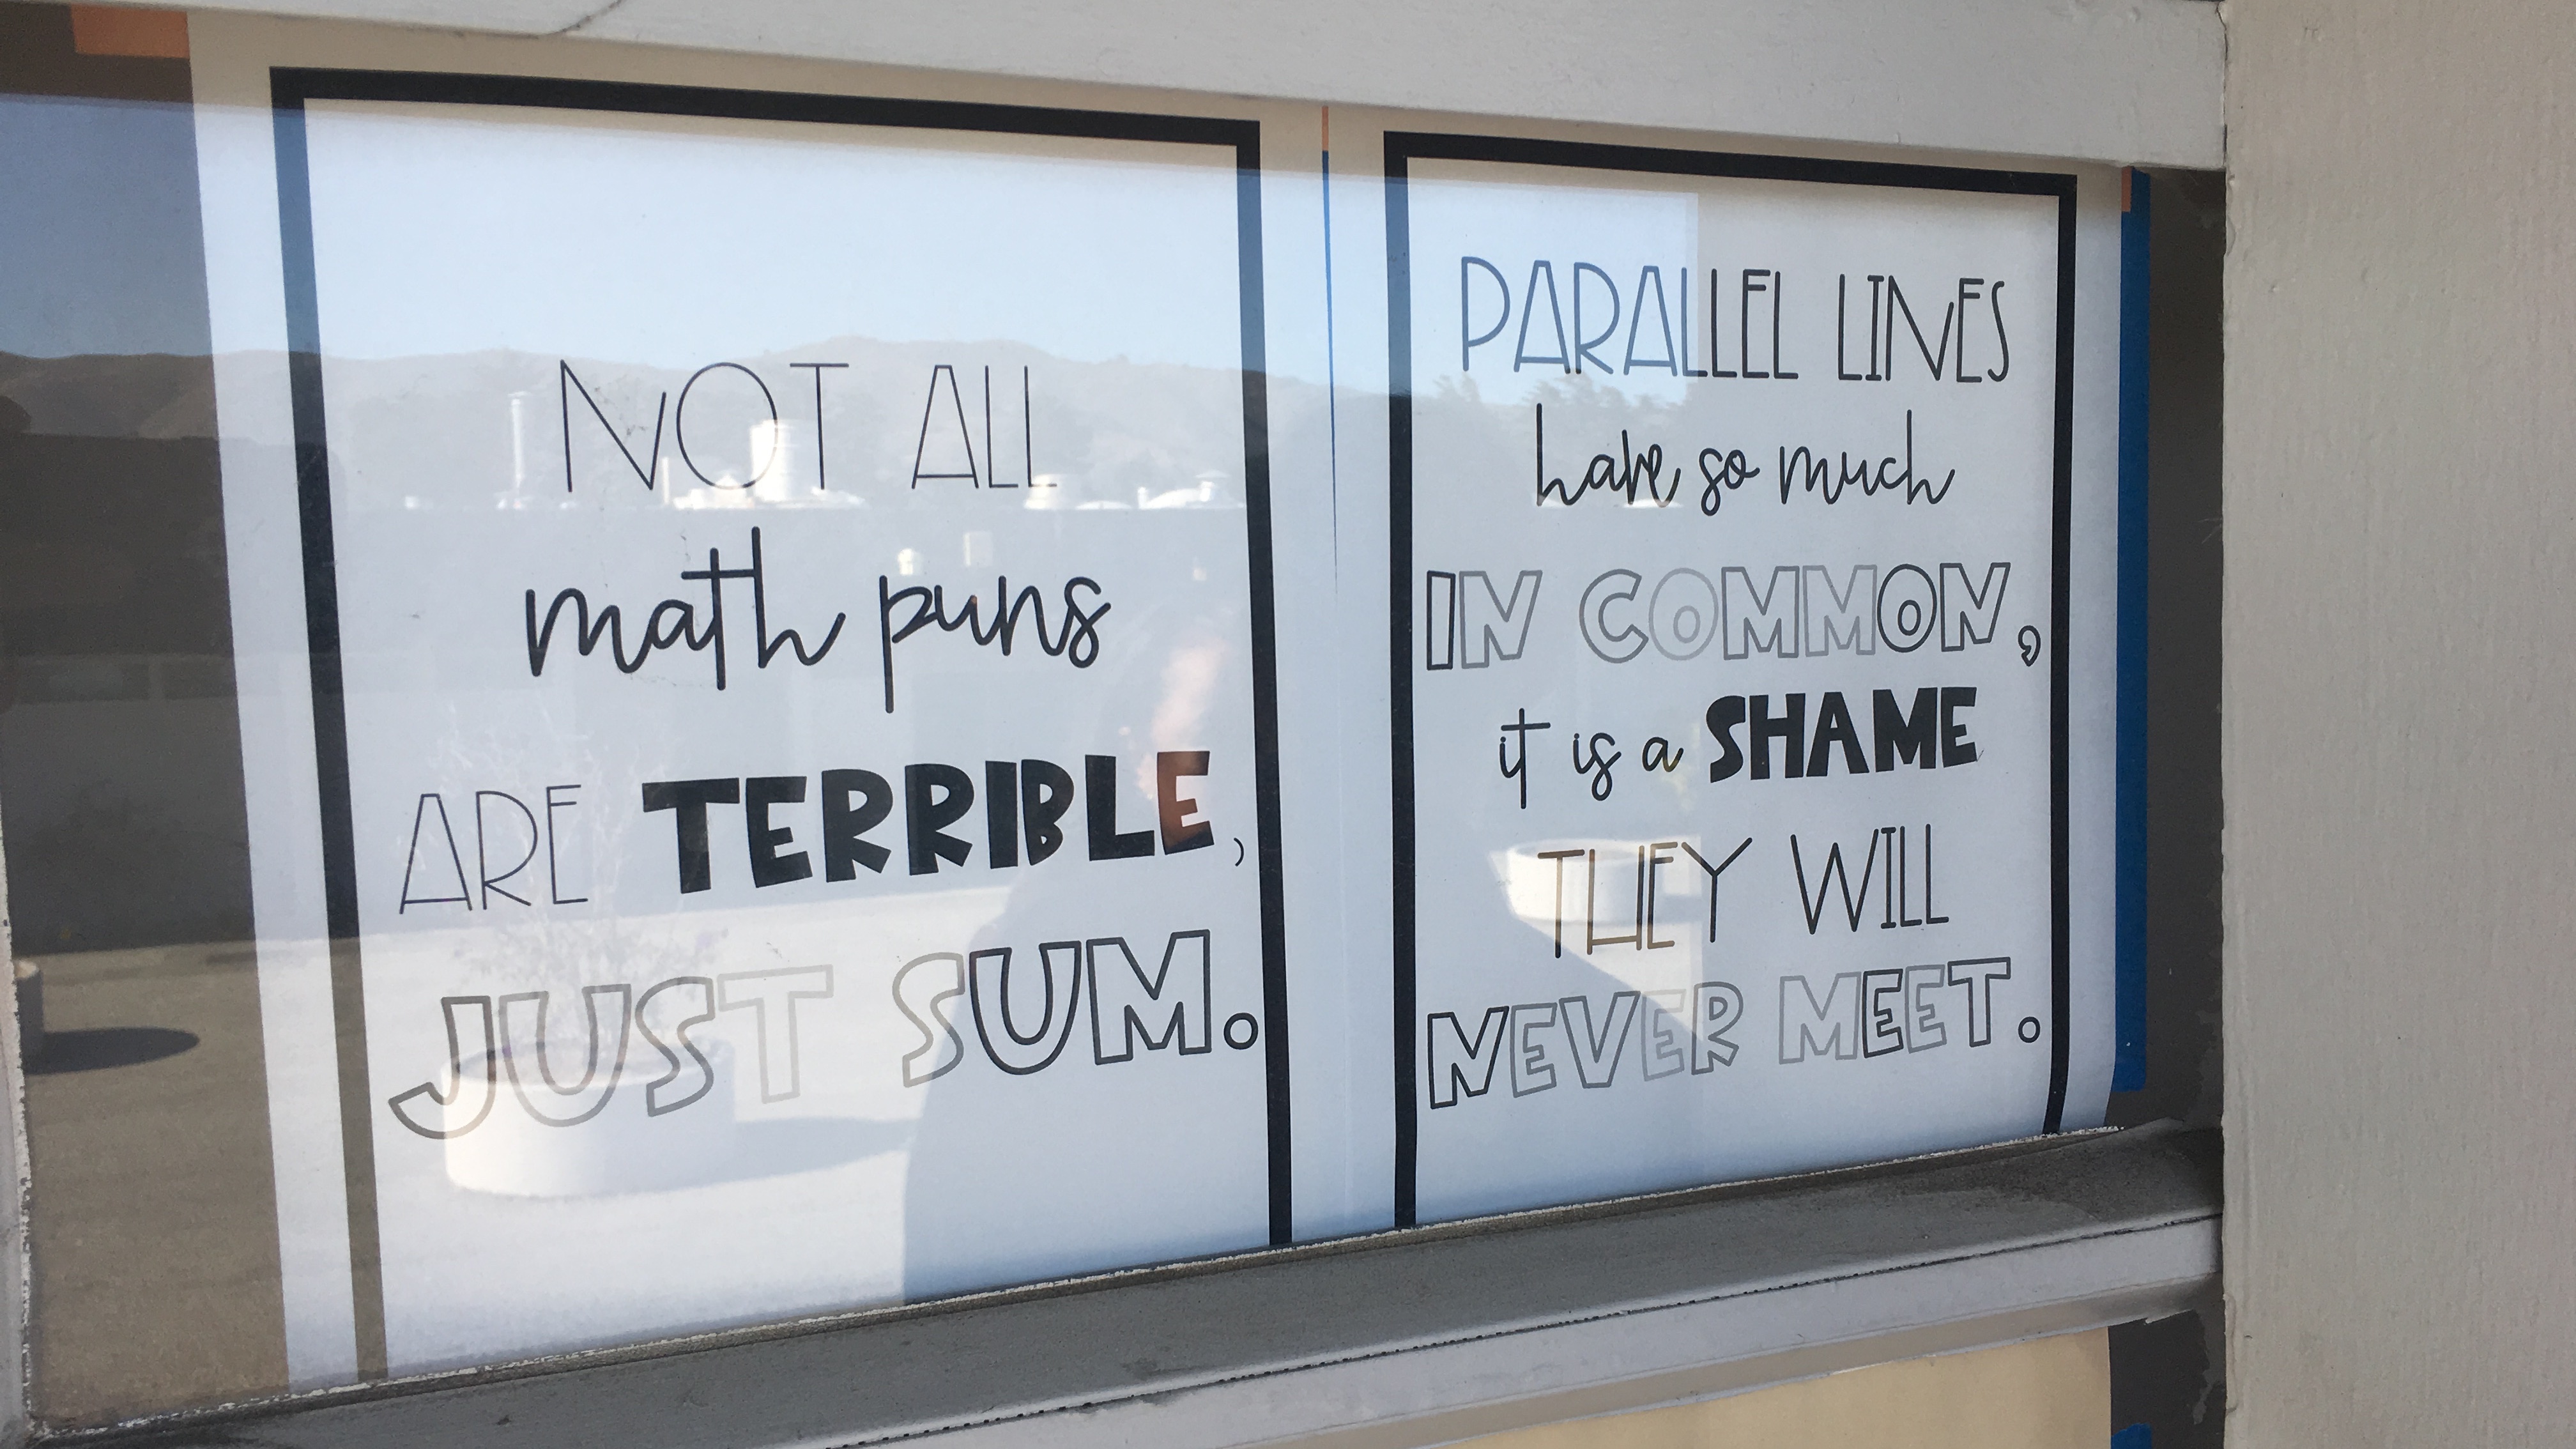 NOT ALL
math puns
ARE TERRIBLE,
JUST SUM.
PARALLEL LINES
have so much
IN COMMON,
it is a SHAME
THEY WILL
NEVER MEET.